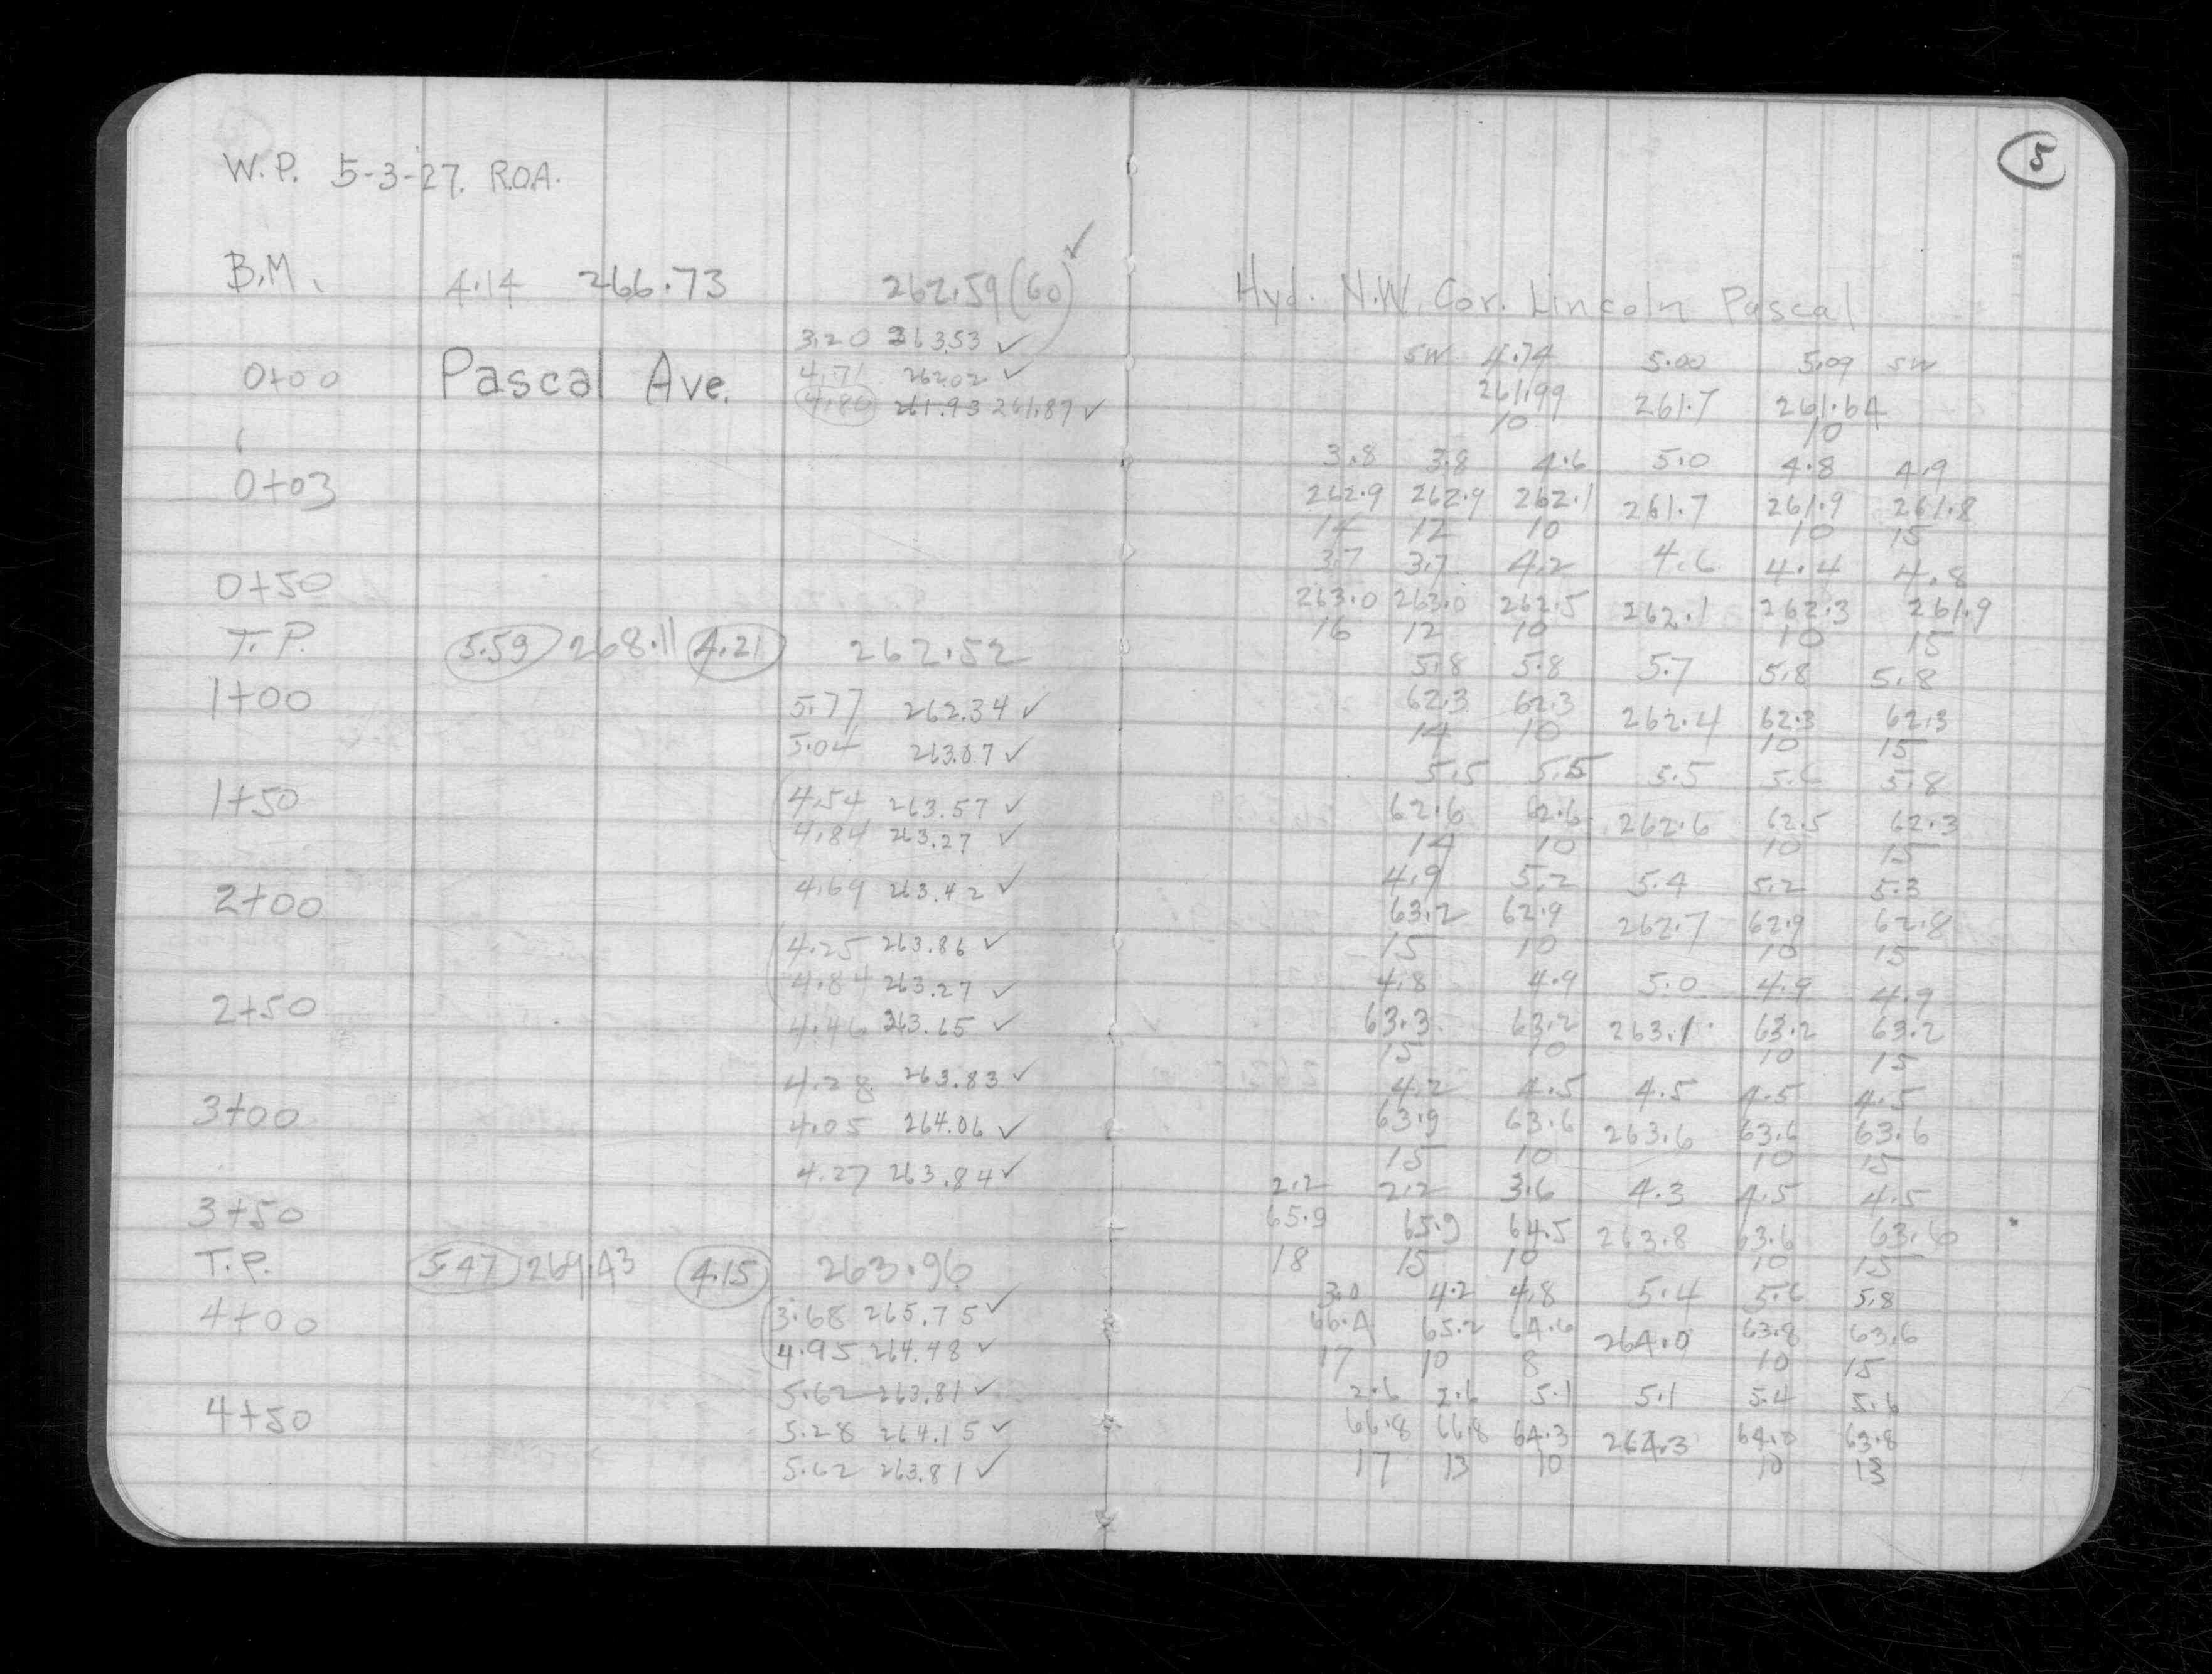 5
W.P. 5-3-27. R.O.A.
B.M. 4.14 266.73 262.59 (60) ✓ Hyd. N.W. Cor. Lincoln Pascal
3.20 263.53 ✓
SW 4.74 5.00 5.09 SW
0+00 Pascal Ave. 4.71 262.02 ✓
261.99 261.7 261.64
4.80 261.93 261.87 ✓
10 10
3.8 3.8 4.6 5.0 4.8 4.9
0+03 262.9 262.9 262.1 261.7 261.9 261.8
14 12 10 10 15
3.7 3.7 4.2 4.6 4.4 4.8
0+50 263.0 263.0 262.5 262.1 262.3 261.9
16 12 10 10 15
T.P. 5.59 268.11 4.21 262.52
5.8 5.8 5.7 5.8 5.8
1+00 5.77 262.34 ✓ 62.3 62.3 262.4 62.3 62.3
14 10 10 15
5.04 263.07 ✓
5.5 5.5 5.5 5.6 5.8
1+50 4.54 263.57 ✓ 62.6 62.6 262.6 62.5 62.3
4.84 263.27 ✓ 14 10 10 15
4.69 263.42 ✓ 4.9 5.2 5.4 5.2 5.3
2+00 63.2 62.9 262.7 62.9 62.8
4.25 263.86 ✓ 15 10 10 15
4.84 263.27 ✓ 4.8 4.9 5.0 4.9 4.9
2+50 4.46 263.65 ✓ 63.3 63.2 263.1 63.2 63.2
15 10 10 15
4.28 263.83 ✓ 4.2 4.5 4.5 4.5 4.5
3+00 4.05 264.06 ✓ 63.9 63.6 263.6 63.6 63.6
15 10 10 15
4.27 263.84 ✓ 2.2 2.2 3.6 4.3 4.5 4.5
3+50 65.9 65.9 64.5 263.8 63.6 63.6
T.P. 5.47 269.43 4.15 263.96 18 15 10 10 15
3.0 4.2 4.8 5.4 5.6 5.8
4+00 3.68 265.75 ✓ 66.4 65.2 64.6 264.0 63.8 63.6
4.95 264.48 ✓ 17 10 8 10 15
5.62 263.81 ✓ 2.6 2.6 5.1 5.1 5.4 5.6
4+50 5.28 264.15 ✓ 66.8 66.8 64.3 264.3 64.0 63.8
5.62 263.81 ✓ 17 13 10 10 13